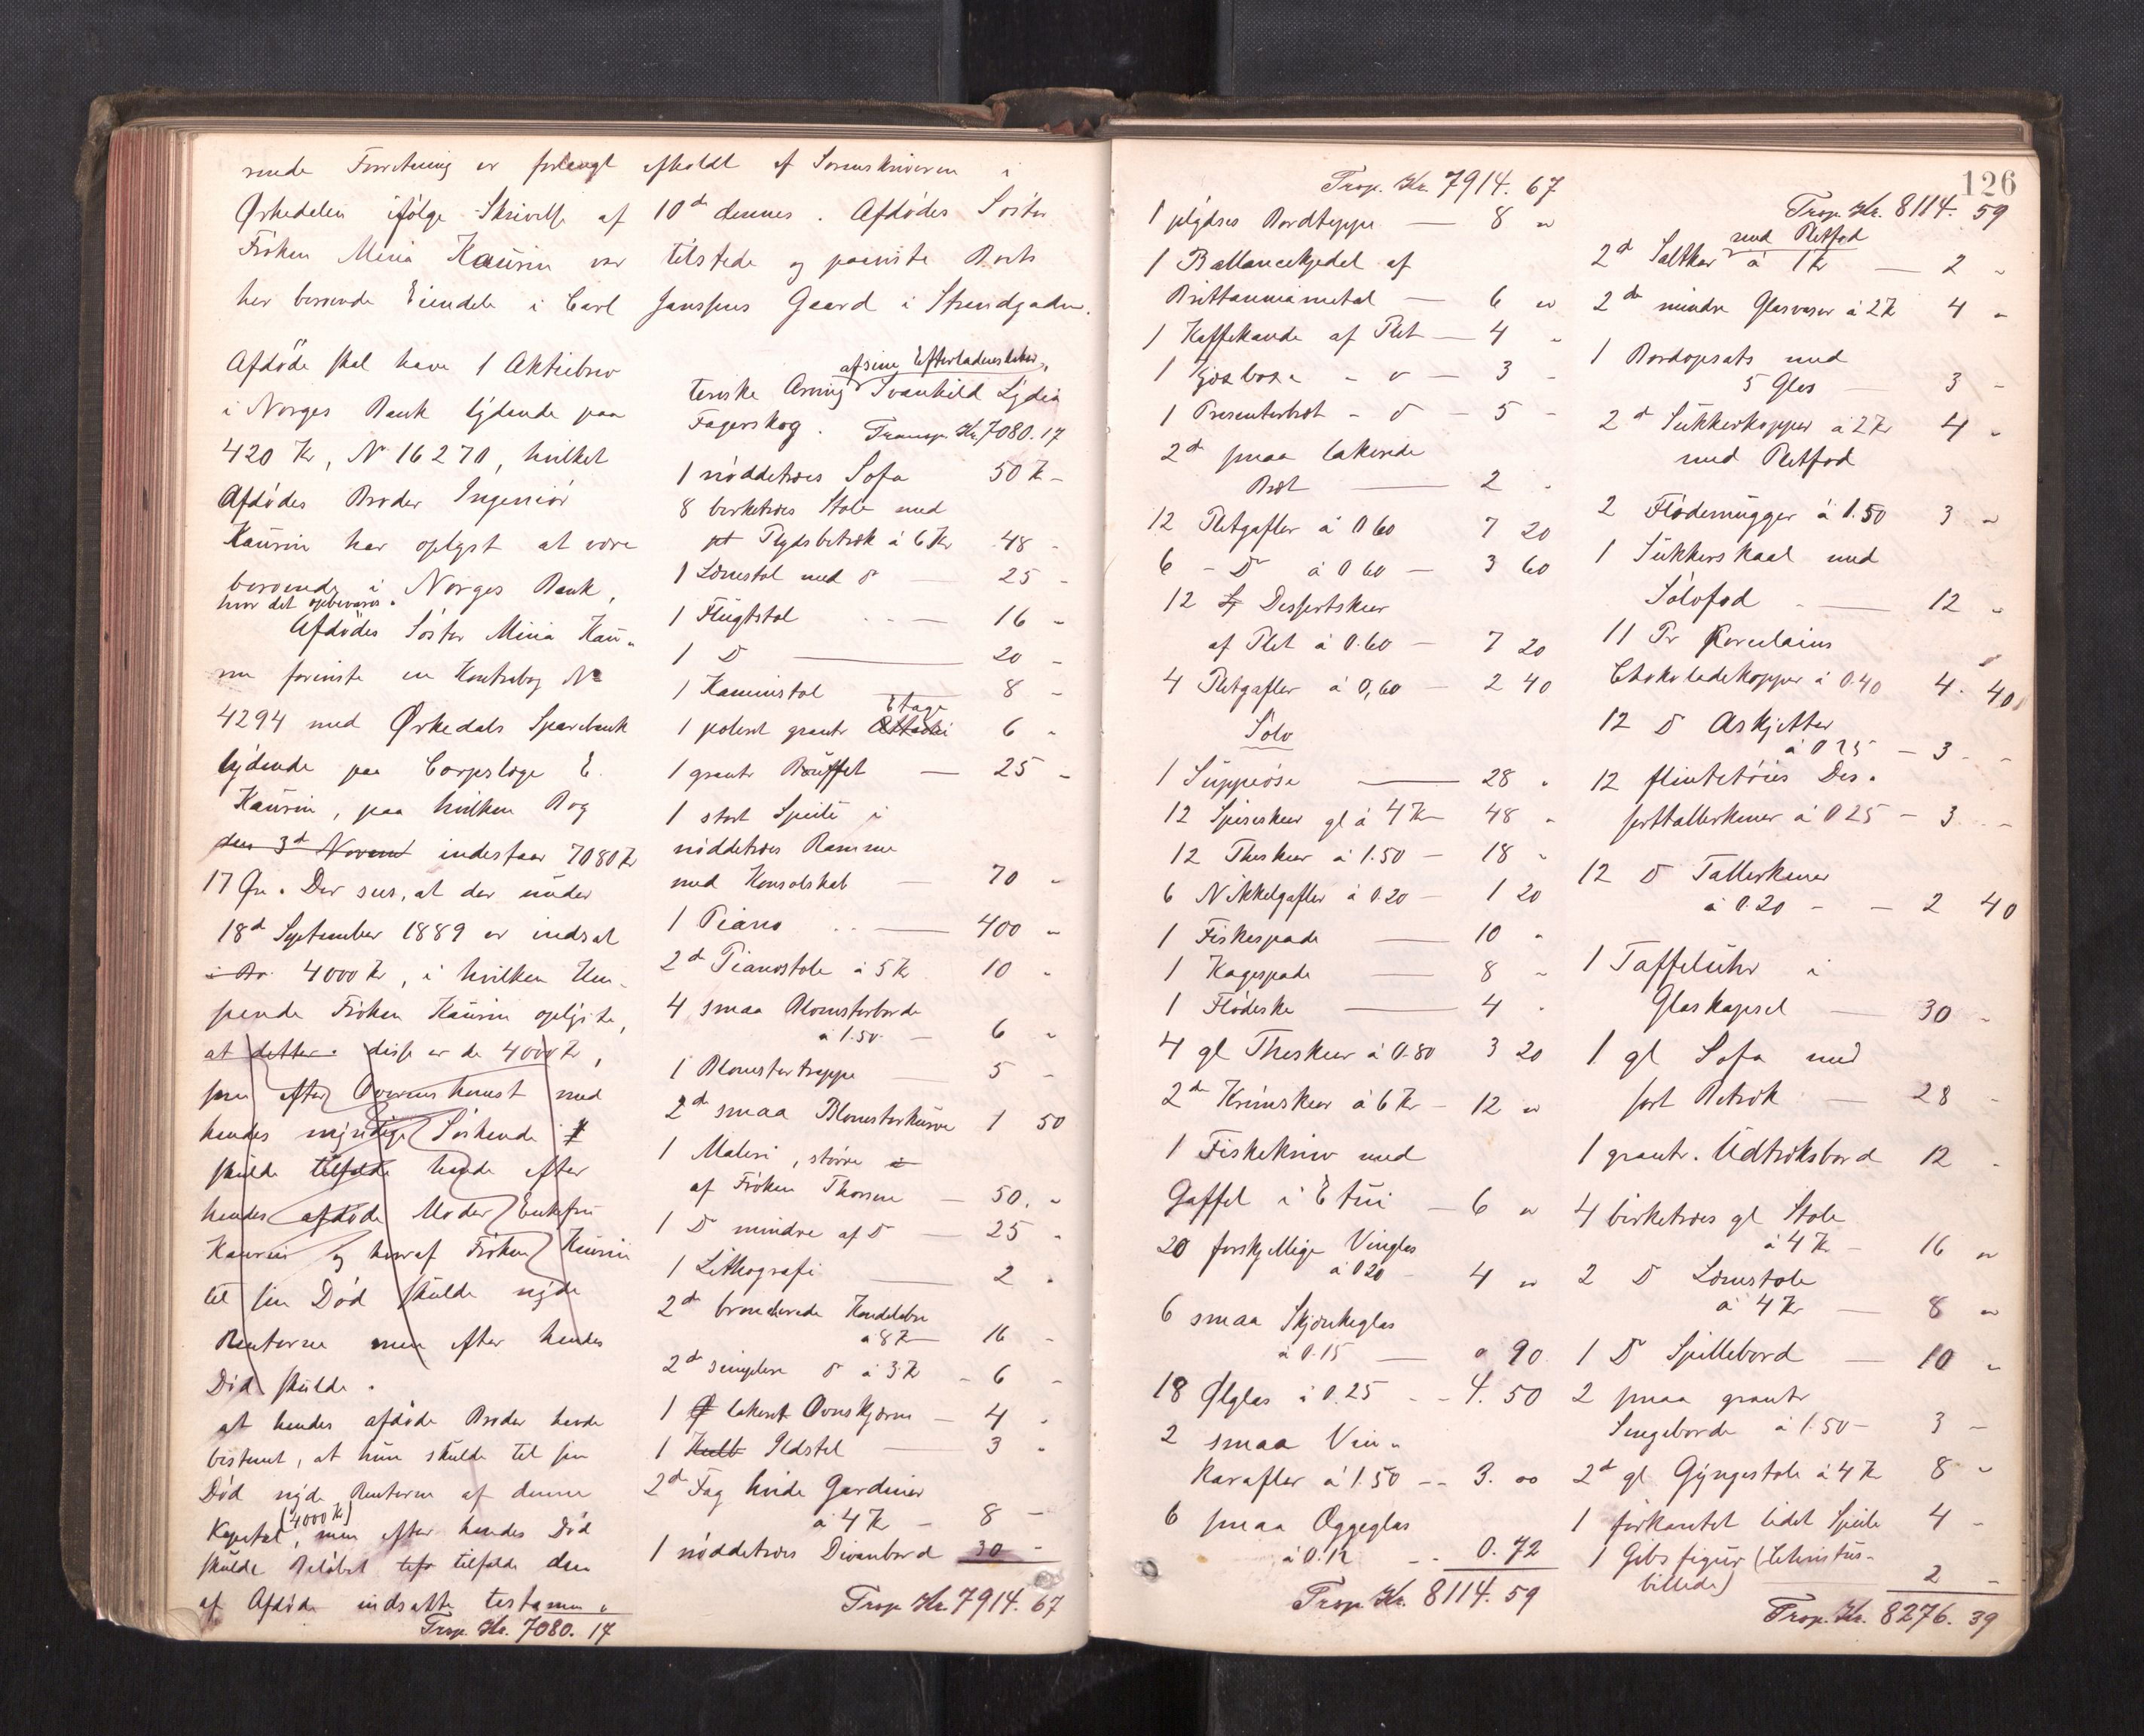 rende Forretning er forlængst afholdt af Sorenskriveren i
Ørkedalen ifølge Skrivelse af 10de dennes. Afdødes Søster
Frøken Mina Kaurin var tilstede og paaviste Boets
her beroende Eiendele i Carl Jansens Gaard i Strandgaden.
Afdøde skal have 1 Aktiebrev
i Norges Bank lydende paa
420 Kr, No 16270, hvilket
Afdødes Broder Ingeniør
Kaurin har oplyst at være
beroende i Norges Bank,
hvor det opbevares.
Afdødes Søster Mina Kau-
rin foreviste en Kontrabog No
4294 med Ørkedals Sparebank
lydende paa Corpslæge E.
Kaurin, paa hvilken Bog
den 3d Novemb indestaar 7080 Kr
17 Øre. Der sees, at der under
18d September 1889 er indsat
i Bo. 4000 Kr, i hvilken Hen-
seende Frøken Kaurin oplyste,
at dette disse er de 4000 Kr,
som efter Overenskomst med
hendes myndige Søskende
skulde tilfalde hende efter
hendes afdøde Moder Enkefru
Kaurin og hvoraf Frøken Kaurin
til sin Død skulde nyde
Renterne men efter hendes
Død skulde.
at hendes afdøde Broder havde
bestemt, at hun skulde til sin
Død nyde Renterne af denne
(4000 Kr)
Kapital, men efter hendes Død
skulde Beløbet tilfalde den
af Afdøde indsatte testamen-
Trsp. Kr. 7080. 17
af sine Efterladenskaber,
tariske Arving Svanhild Lydia
Fagerskog. Transp. Kr. 7080.17
1 nøddetræes Sofa 50 Kr -
8 birketræes Stole med
Plydsbetræk á 6 Kr 48 -
1 Lænestol med do 25 -
1 Flugtstol 16 -
1 Do 20 -
1 Kaminstol 8 -
Etage
1 poleret grantr 6 -
1 grantr Bouffet 25 -
1 stort Speile i
nøddetræes Ramme
med Konsolskab 70 -
1 Piano 400 -
2de Pianostole á 5 Kr 10 -
4 smaa Blomsterborde
á 1.50 6 -
1 Blomstertrappe 5 -
2de smaa Blomsterkurve 1 50
1 Maleri, større
af Frøken Thorsen 50. -
1 Do mindre af Do 25 -
1 Lithografi 2 -
2de broncerede Kandelabre
á 8 Kr 16 -
2de simplere do á 3 Kr 6 -
1 lakeret Ovnskjærm 4 -
1 Kulb Ildstel 3 -
2de Fag hvide Gardiner
á 4 Kr 8 -
1 nøddetræes Divanbord 30 -
Trsp. Kr. 7914. 67
126
Trsp. Kr. 7914. 67
1 plydses Bordteppe 8 -
1 Ballancekjedel af
Brittanniametal 6 -
1 Kaffekande af Plet 4 -
1 - do - 3 -
1 Presenterbræt - do - 5 -
2de smaa lakerede
Bræt 2 -
12 Pletgafler á 0 60 7 20
6 - Do á 0 60 3 60
12 Dessertskeer
af Plet á 0.60 7 20
4 Pletgafler á 0,60 2 40
Sølv
1 Suppeøse 28 -
12 Spiseskeer gl á 4 Kr 48 -
12 Theskeer á 1.50 18 -
6 Nikkelgafler á 0.20 1 20
1 Fiskespade 10 -
1 Kagespade 8 -
1 Flødeske 4 -
4 gl Theskeer á 0.80 3 20
2de Krimskeer á 6 Kr 12 -
1 Fiskekniv med
Gaffel i Etui 6 -
20 forskjellige Vinglas
á 0 20 4 -
6 smaa Skjænkeglas
á 0.15 0 90
18 Ølglas á 0.25 4.50
2 smaa Vin-
karafler á 1.50 3. 00
6 smaa Æggeglas
á 0.12 0.72
Trsp. Kr. 8114. 59
Trsp. Kr. 8114. 59
med Pletfod
2de Saltkar á 1 Kr 2 -
2de mindre Glasvaser á 2 Kr 4 -
1 Bordopsats med
5 Glas 3 -
2de Sukkerkopper á 2 Kr 4 -
med Pletfod
2 Flødemugger á 1.50 3 -
1 Sukkerskaal med
Sølvfod 12 -
11 Pr Porcelains
Chokoladekopper á 0.40 4. 40
12 Do Askjetter
á 0 25 3 -
12 flintetøies Des-
serttallerkener á 0 25 3 -
12 Do Tallerkener
á 0.20 2 40
1 Taffeluhr i
Glaskapsel 30 -
1 gl Sofa med
sort Betræk 28 -
1 grantr. Udtræksbord 12 -
4 birketræes gl Stole
á 4 Kr 16 -
2 Do Lænestole
á 4 Kr 8 -
1 Do Spillebord 10 -
2 smaa grantr
Sengeborde á 1.50 3 -
2de gl Gyngestole á 4 Kr 8 -
1 firkantet lidet Speile 4 -
1 Gibsfigur (Christus-
billede) 2 -
Trsp. Kr. 8276. 39